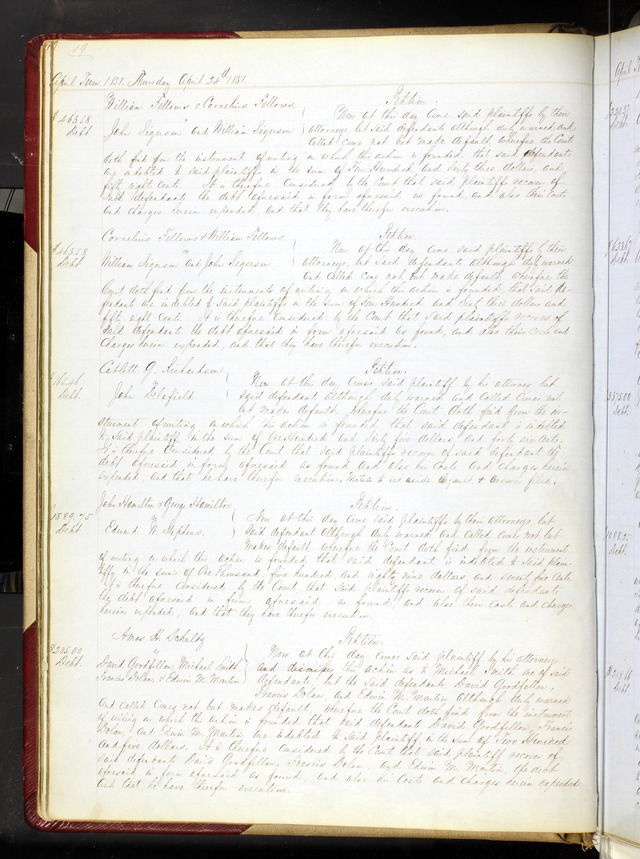 April Term 1851. Thursday April 24th 1851
William Fellows & Cornelius Fellows
Petition
$463.58
Debt
Now at this day come said plaintiffs by their
John Segerson and William Segerson
attorneys but said defendants although duly warned and
called come not but make default wherefore the Court
doth find from the instrument of writing on which the action is founded, that said defendants
are indebted to said plaintiffs in the sum of Four Hundred and Sixty three dollars, and
fifty eight cents. It is therefore Considered by the Court that said plaintiffs recover of
said defendants the debt aforesaid in form aforesaid as found, and also their Costs
and charges herein expended, and that they have therefor execution.
Cornelius Fellows & William Fellows
Petition
$463.58
Debt
Now at this day Come said plaintiffs by their
William Segerson and John Segerson
attorneys, but said defendants although duly warned
and called come not but make default, wherefore the
Court doth find from the instruments of writing on which the action is founded, that said de-
fendants are indebted to said plaintiffs in the sum of Four Hundred and Sixty three dollars and
fifty eight cents. It is therefore Considered by the Court that said plaintiffs recover of
said defendants the debt aforesaid in form aforesaid as found, and also their Costs and
Charges herein expended, and that they have therefor execution.
Catlett G. Richardson
Petition.
Debt.
Now at this day Comes said plaintiff by his attorney but
John Delafield
said defendant although duly warned and Called Comes not
but makes default, wherefore the Court doth find from the in-
strument of writing on which the action is founded, that said defendant is indebted
to said plaintiff in the sum of One Hundred and Sixty five dollars, and forty six cents.
It is therefore Considered by the Court that said plaintiff recover of said defendant the
debt aforesaid in form aforesaid as found and also his Costs and Charges herein
expended and that he have therefor execution. Motion to set aside Judgmt & answer filed.
John Hamilton & George Hamilton
Petition.
$1589.75
Debt
Now at this day come said plaintiffs by their attorneys, but
Edward W. Stephens.
said defendant although duly warned and called comes not but
makes default wherefore the Court doth find from the instrument
of writing on which the action is founded, that said defendant is indebted to said plain-
tiffs in the sum of One Thousand five hundred and eighty nine dollars and seventy five Cents
It is therefore Considered by the Court that said plaintiffs recover of said defendants
the debt aforesaid in form aforesaid as found, and also their costs and charges
herein expended, and that they have therefor execution.
Amos H. Schultz
Petition.
$205.00
Debt.
Now at this day comes said plaintiff by his attorney
David Goodfellow, Michael Smith
and dismisses the action as to Michael Smith one of said
Francis Dolan, & Edwin M. Martin
defendants, but the said defendants David Goodfellow,
Francis Dolan, and Edwin M. Martin although duly warned
and called Come not but makes default, wherefore the Court doth find from the instrument
of writing on which the action is founded that said defendants David Goodfellow, Francis
Dolan, and Edwin M. Martin are indebted to said Plaintiff in the sum of Two Hundred
and five dollars. It is therefore considered by the Court that said plaintiff recover of
said defendants David Goodfellow, Francis Dolan, and Edwin M. Martin, the debt
aforesaid in form aforesaid as found, and also his Costs and charges herein expended
and that he have therefor execution.